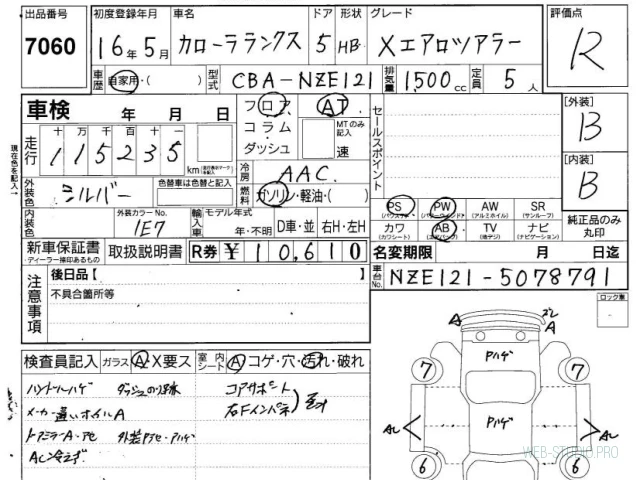 出品番号 初度登録年月 車名 ドア 形状 グレード 評価点
7060 16年5月 カローラランクス 5 HB Xエアロツアラー R
車歴 自家用・( ) 型式 CBA-NZE121 排気量 1,500cc 定員 5人
車検 年 月 日 フロア AT セールスポイント [外装]
十 万 千 百 十 一 コラム MTのみ記入 B
走行 115235 km ・ダッシュ 速
現在色を記入→
冷房 AAC [内装]
外装色 シルバー 色替車は色替と記入 燃料 ガソリン・軽油・( ) B
PS PW AW SR
(パワステ) (パワーウインド) (アルミホイル) (サンルーフ)
内装色 外装カラーNo. 1E7 輸入車 モデル年式 カワ AB TV ナビ 純正品のみ丸印
年・不明 D車・並 右H・左H (カワシート) (エアバック) (地デジ) (ナビゲーション)
新車保証書 取扱説明書 R券 ¥10,610 名変期限 月 日迄
・ディーラー捺印あるもの
注意事項 後日品 [ ] 車台No. NZE121-5078791
不具合箇所等 ロック車
A ズレ A
Pハゲ
検査員記入 ガラス A X要ス 室内シート A コゲ・穴・汚れ・破れ
7 7
ハンドルハゲ コアサポート
メーカー違いホイルA 右Fインパネ
Pハゲ
ドアミラーA・アセ 外装アセ・ハゲ
AC冷えず
6 6
WEB-STUDIO.PRO